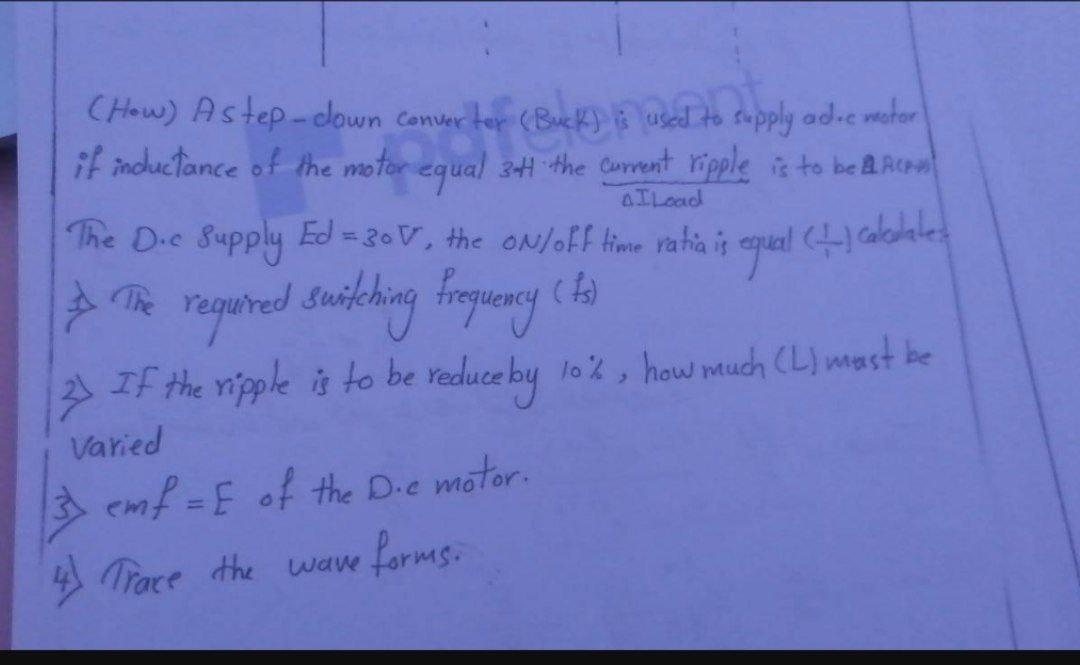 (How) A step-down converter (Buck) is used to supply a d.c motor
if inductance of the motor equal 3H the current ripple is to be
ΔILoad
The D.c Supply Ed = 30V, the ON/off time ratio is equal (1/1) Calculate:
1) The required switching frequency (fs)
2) If the ripple is to be reduce by 10%, how much (L) must be
varied
3) emf = E of the D.c motor.
4) Trace the wave forms.
pdfelement